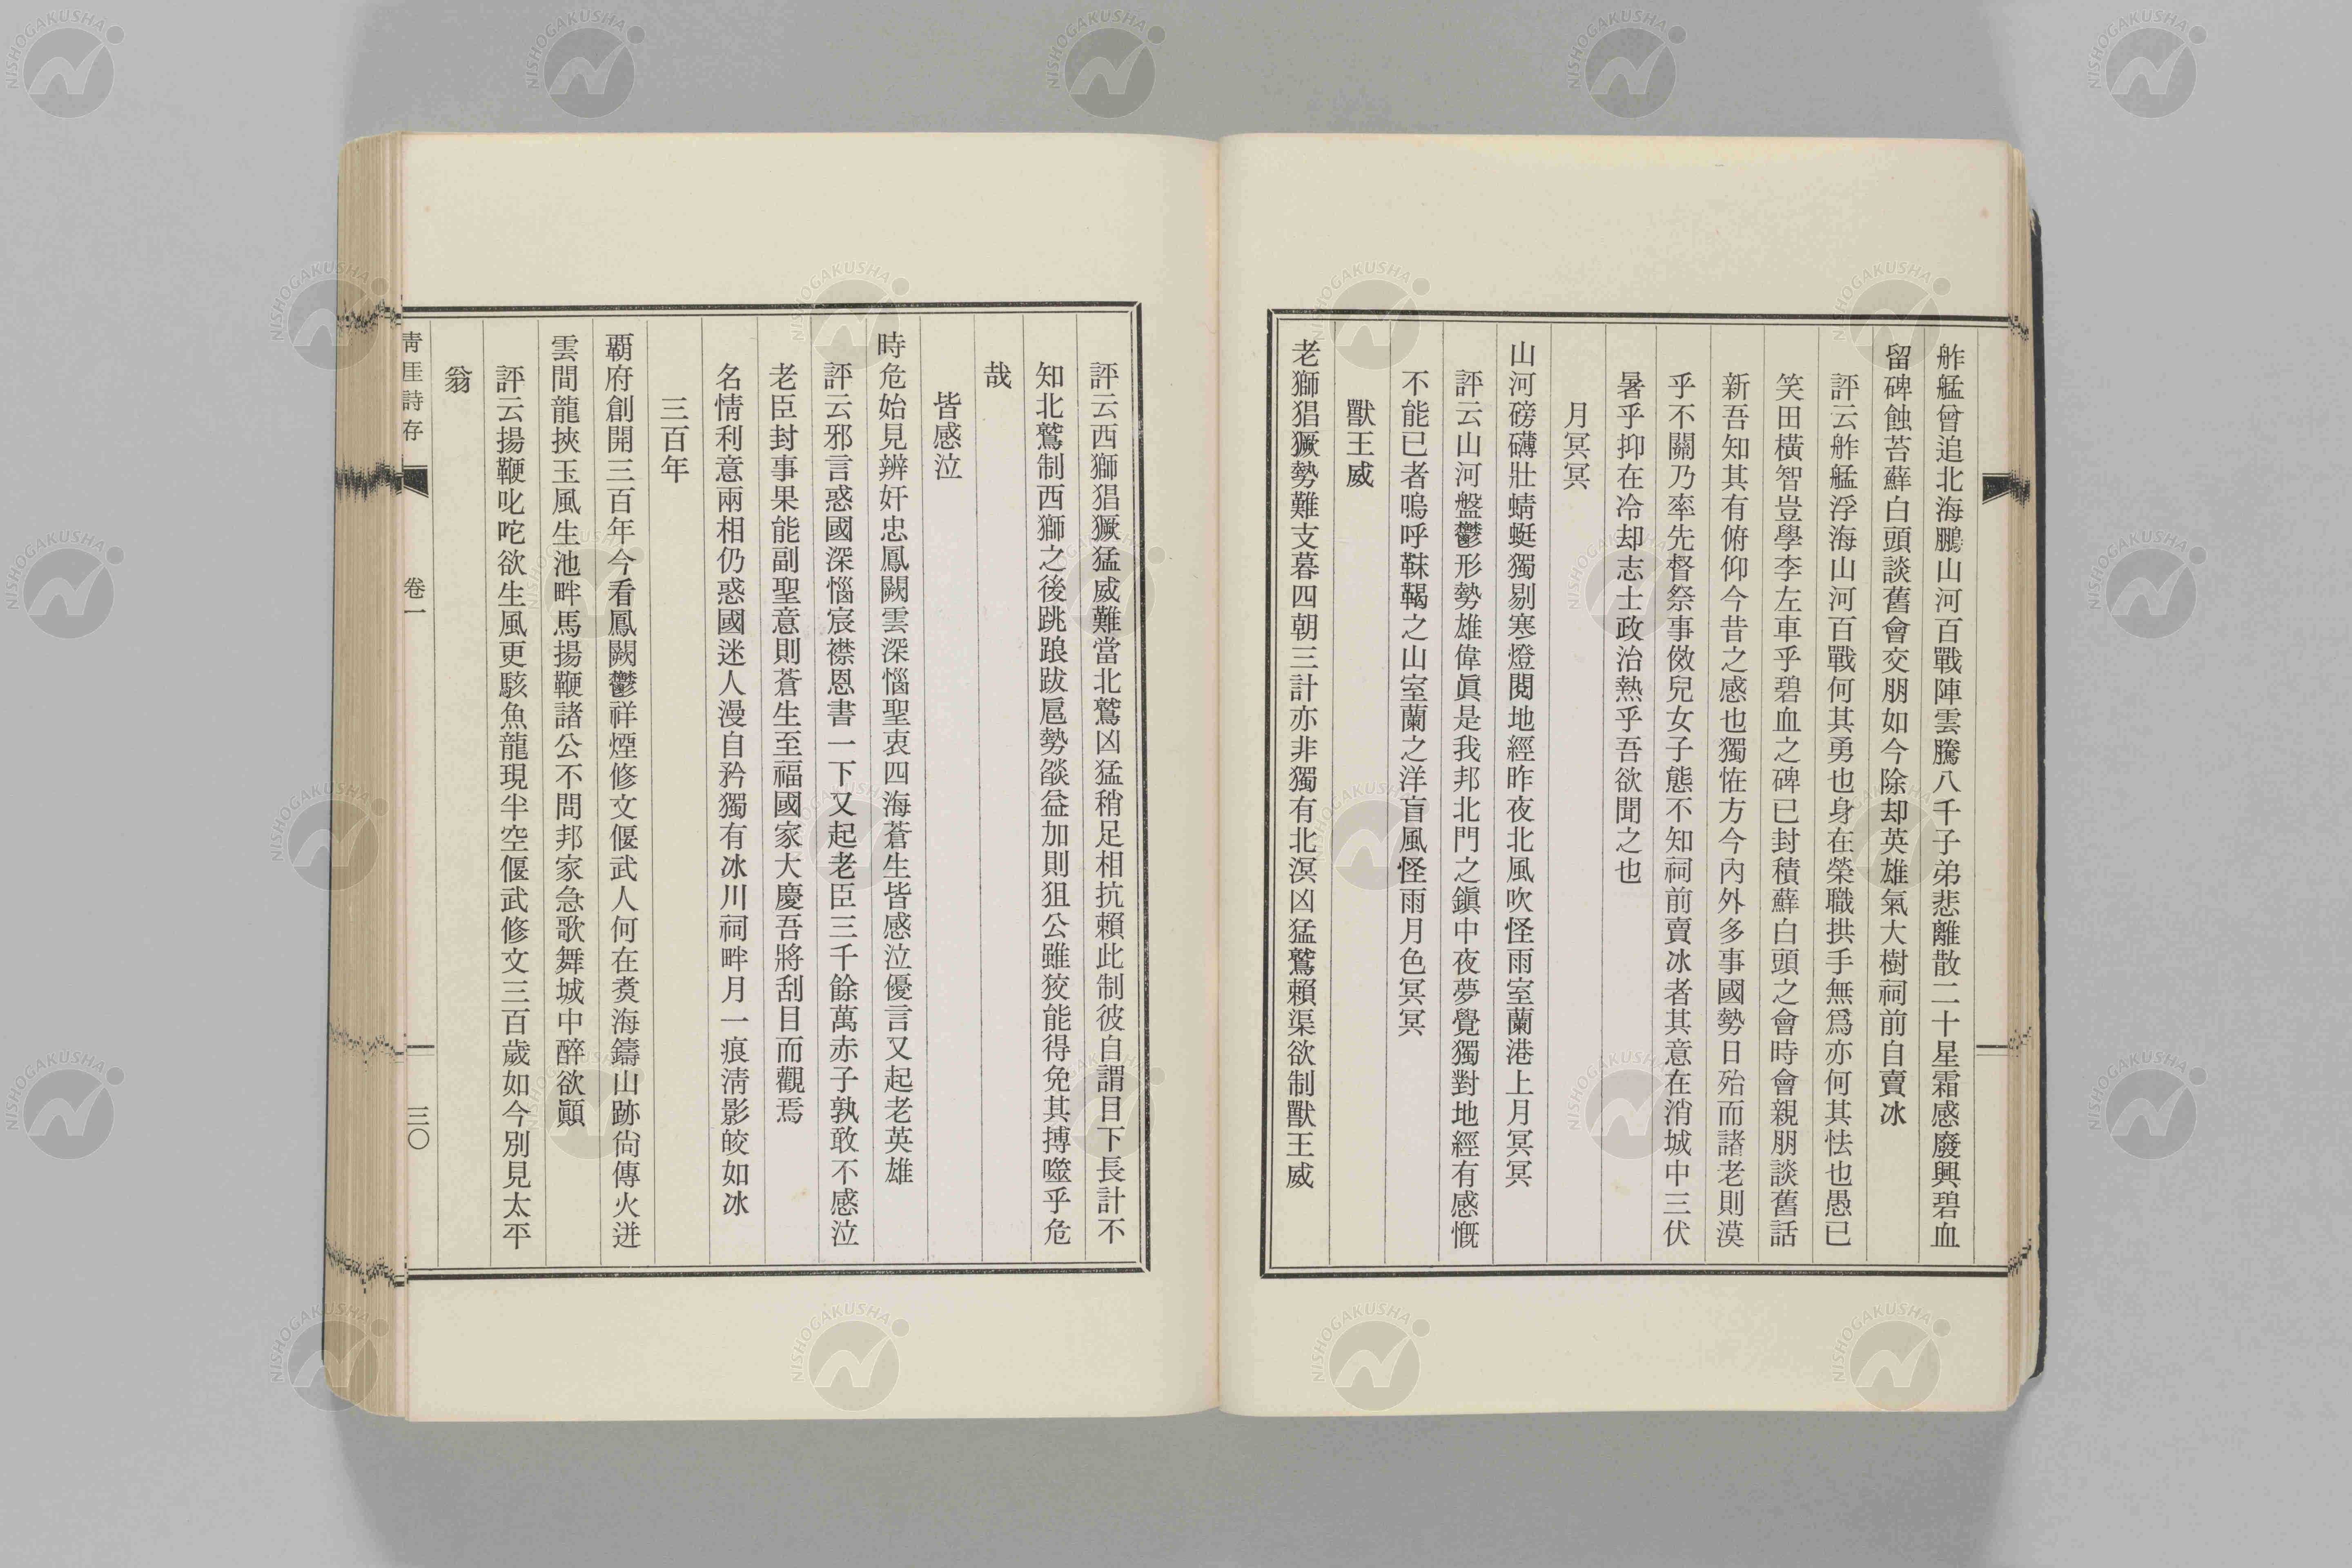 舴艋曾追北海鵬山河百戰陣雲騰八千子弟悲離散二十星霜感廢興碧血
留碑蝕苔蘚白頭談舊會交朋如今除却英雄氣大樹祠前自賣冰
評云舴艋浮海山河百戰何其勇也身在榮職拱手無爲亦何其怯也愚已
笑田橫智豈學李左車乎碧血之碑已封積蘚白頭之會時會親朋談舊話
新吾知其有俯仰今昔之感也獨恠方今內外多事國勢日殆而諸老則漠
乎不關乃率先督祭事傚兒女子態不知祠前賣冰者其意在消城中三伏
暑乎抑在冷却志士政治熱乎吾欲聞之也
月冥冥
山河磅礴壯蜻蜓獨剔寒燈閱地經昨夜北風吹怪雨室蘭港上月冥冥
評云山河盤鬱形勢雄偉眞是我邦北門之鎭中夜夢覺獨對地經有感慨
不能已者嗚呼靺鞨之山室蘭之洋盲風怪雨月色冥冥
獸王威
老獅猖獗勢難支暮四朝三計亦非獨有北溟凶猛鷲賴渠欲制獸王威
評云西獅猖獗猛威難當北鷲凶猛稍足相抗賴此制彼自謂目下長計不
知北鷲制西獅之後跳踉跋扈勢燄益加則狙公雖狡能得免其搏噬乎危
哉
皆感泣
時危始見辨奸忠鳳闕雲深惱聖衷四海蒼生皆感泣優言又起老英雄
評云邪言惑國深惱宸襟恩書一下又起老臣三千餘萬赤子孰敢不感泣
老臣封事果能副聖意則蒼生至福國家大慶吾將刮目而觀焉
名情利意兩相仍惑國迷人漫自矜獨有冰川祠畔月一痕淸影皎如冰
三百年
覇府創開三百年今看鳳闕鬱祥煙修文偃武人何在煑海鑄山跡尙傳火迸
雲間龍挾玉風生池畔馬揚鞭諸公不問邦家急歌舞城中醉欲顚
評云揚鞭叱咤欲生風更駭魚龍現半空偃武修文三百歲如今別見太平
翁
靑厓詩存
卷一
三〇
NISHOGAKUSHA